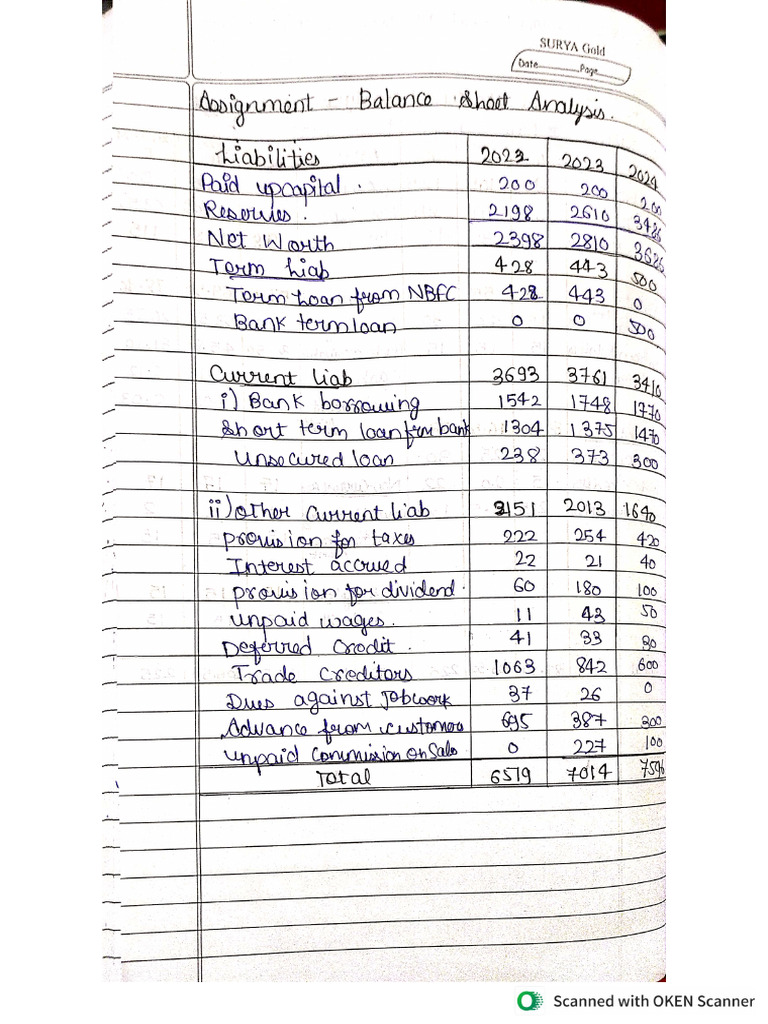 SURYA Gold
Date Page
Assignment - Balance Sheet Analysis.
Liabilities 2022 2023 2024
Paid upcapital. 200 200 200
Reserves. 2198 2610 3486
Net Worth 2398 2810 3686
Term Liab 428 443 500
Term Loan from NBFC 428 443 0
Bank termloan 0 0 500
Current Liab 3693 3761 3410
i) Bank borrowing 1542 1748 1770
Short term loan frm bank 1304 1375 1470
Unsecured loan 238 373 300
ii) other current Liab 2151 2013 1640
provision for taxes 222 254 420
Interest accrued 22 21 40
provision for dividend. 60 180 100
unpaid wages. 11 43 50
Deferred Credit. 41 33 30
Trade Creditors 1063 842 600
Dues against Jobwork 37 26 0
Advance from customers 695 387 300
unpaid Commission on Sale 0 227 100
Total 6519 7014 7596
Scanned with OKEN Scanner